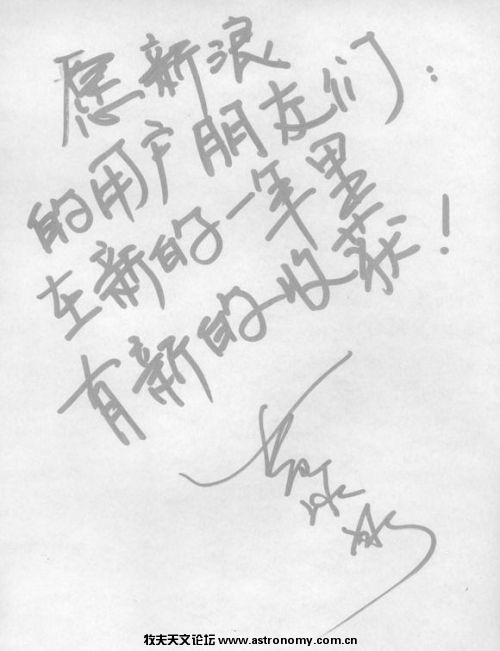 愿新浪
的用户朋友们:
在新的一年里
有新的收获!
牧夫天文论坛 www.astronomy.com.cn